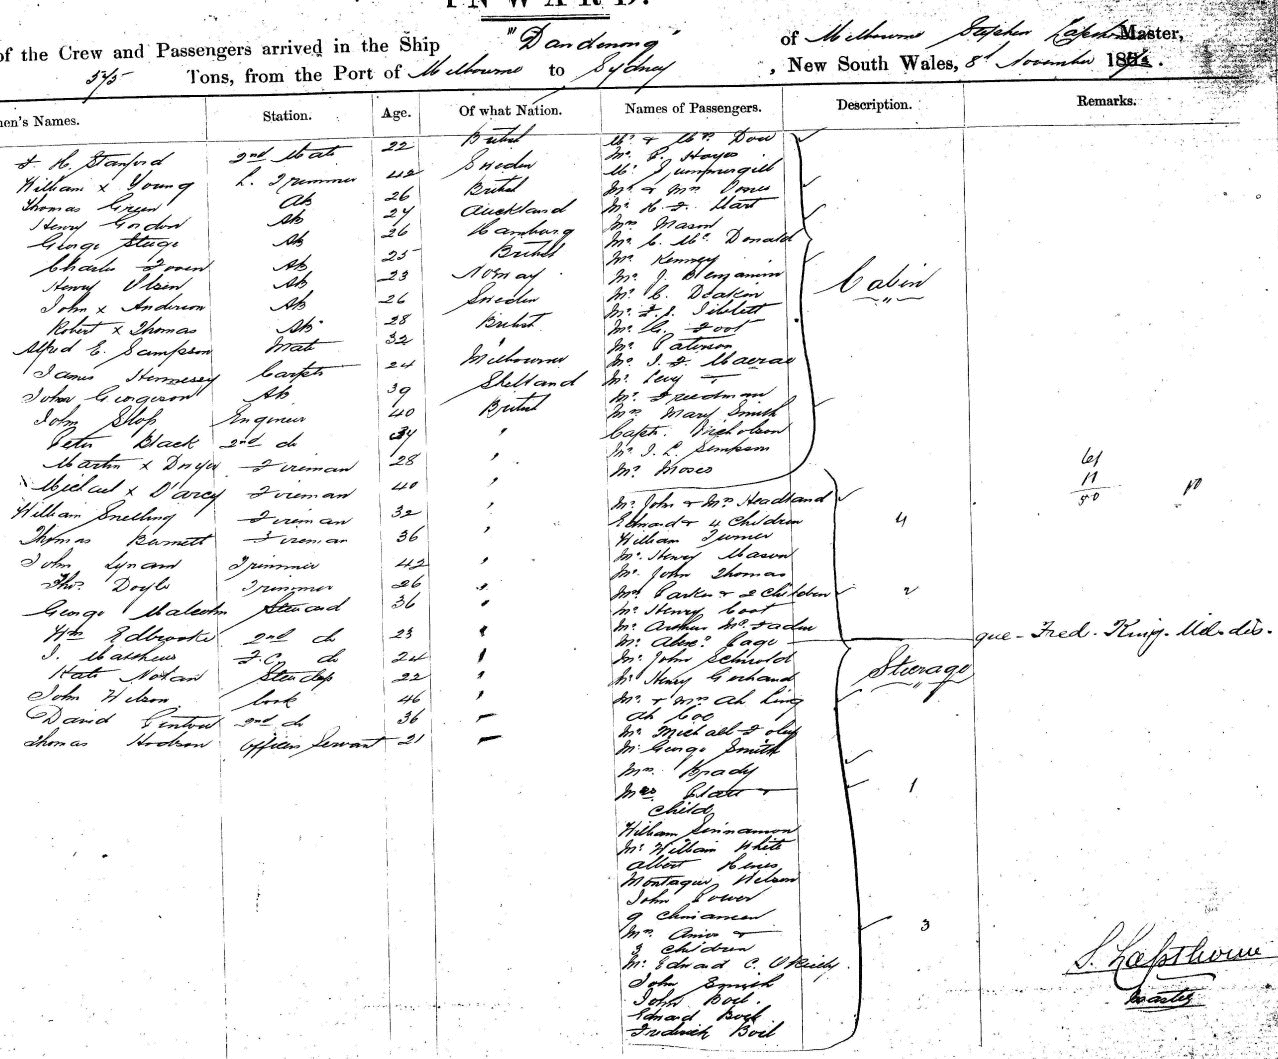 INWARD.
of the Crew and Passengers arrived in the Ship "Dandenong" of Melbourne Stephen Lapsthorne Master,
545 Tons, from the Port of Melbourne to Sydney, New South Wales, 8th November 187
men's Names. Station. Age. Of what Nation. Names of Passengers. Description. Remarks.
F. H. Stanford 2nd Mate 22 British
William x Young L. Trimmer 42 Sweden
Thomas Green Ab 26 British
Henry Gordon Ab 27 Auckland
George Ab 26 Hamburg
Charles Ab 25 British
Henry Olsen Ab 23 Norway
John x Anderson Ab 26 Sweden
Robert x Thomas Ab 28 British
Alfred E. Sampson Mate 32 "
James Hennessy Carptr 24 Melbourne
John Georgeson Ab 39 Shetland
John Slop Engineer 40 British
Peter Black 2nd do 34 "
Martin x Dwyer Fireman 28 "
Michael x D'arcy Fireman 40 "
William Snelling Fireman 32 "
Thomas Burnett Fireman 36 "
John Lynam Trimmer 42 "
Thos Doyle Trimmer 26 "
George Malcolm Steward 36 "
Wm Edbrooke 2nd do 23 "
J. Mathews F.C. do 24 "
Kate Nolan Stewdss 22 "
John Wilson Cook 46 "
David 2nd do 36 —
Thomas Hodson Officers Servant 21 —
Mr & Mrs Dow
Mr C. Hayes
Mr
Mr & Mrs
Mr H. F. Hart
Mrs Mason
Mr C. Mc Donald
Mr Kenney
Mr J. Benjamin
Mr C. Deakin
Mr F. J. Tiblett
Mr G. Foot
Mr Paterson
Mr J. F. Macrae
Mr Levy
Mr Freedman
Mrs Mary Smith
Captn Nicholson
Mr J. L. Simpson
Mr Moses
Cabin
Mr John & Mrs Headland
Edward & 4 Children 4
William Turner
Mr Henry Mason
Mr John Thomas
Mrs Parker & 2 Children 2
Mr Henry Coot
Mr Arthur Mc Faden
Mr Alexr Cage que - Fred. King. Mid. dis.
Mr John Schwold
Mr Henry Gerhand
Mr & Mrs Ah Ling
Ah Coo
Mr Michael Foley
Mr George Smith
Mrs Brady
Mrs Clark &
Child 1
William Sinnamon
Mr William White
Albert Hines
Montague Nelson
John Power
9 Chinamen
Mrs Amies &
3 Children 3
Mr Edward C. O'Reilly
John Smith
John Boil.
Edward Boil
Frederick Boil
Steerage
61
11
50
S. Lapsthorne
Master